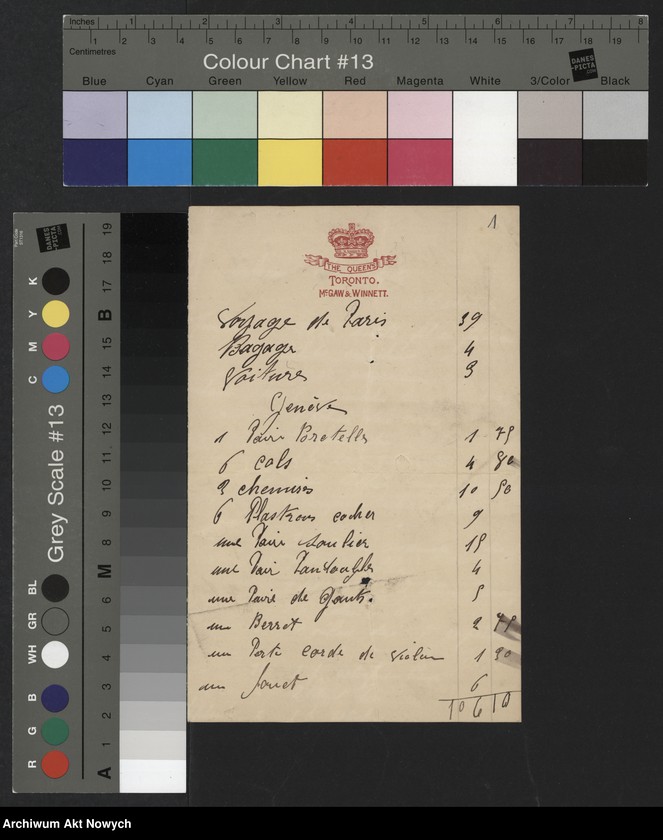 Inches 1 2 3 4 5 6 7 8
Centimetres 1 2 3 4 5 6 7 8 9 10 11 12 13 14 15 16 17 18 19
Colour Chart #13
DANES-PICTA.COM
Blue Cyan Green Yellow Red Magenta White 3/Color Black
Grey Scale #13
DANES-PICTA.COM
C M Y K
R G B WH GR BL
A 1 2 3 4 5 6 M 8 9 10 11 12 13 14 15 B 17 18 19
1
THE QUEEN'S
TORONTO.
McGAW & WINNETT.
Voyage de Paris 39
Bagage 4
Voitures 3
Genève
1 Pair Bretelles 1 75
6 cols 4 80
3 chemises 10 50
6 Plastrons cocher 9
une Paire soulier 15
une Pair Pantoufles 4
une Paire de Gants. 5
un Berret 2 75
un Porte corde de violon 1 30
un Jouet 6
106 10
Archiwum Akt Nowych